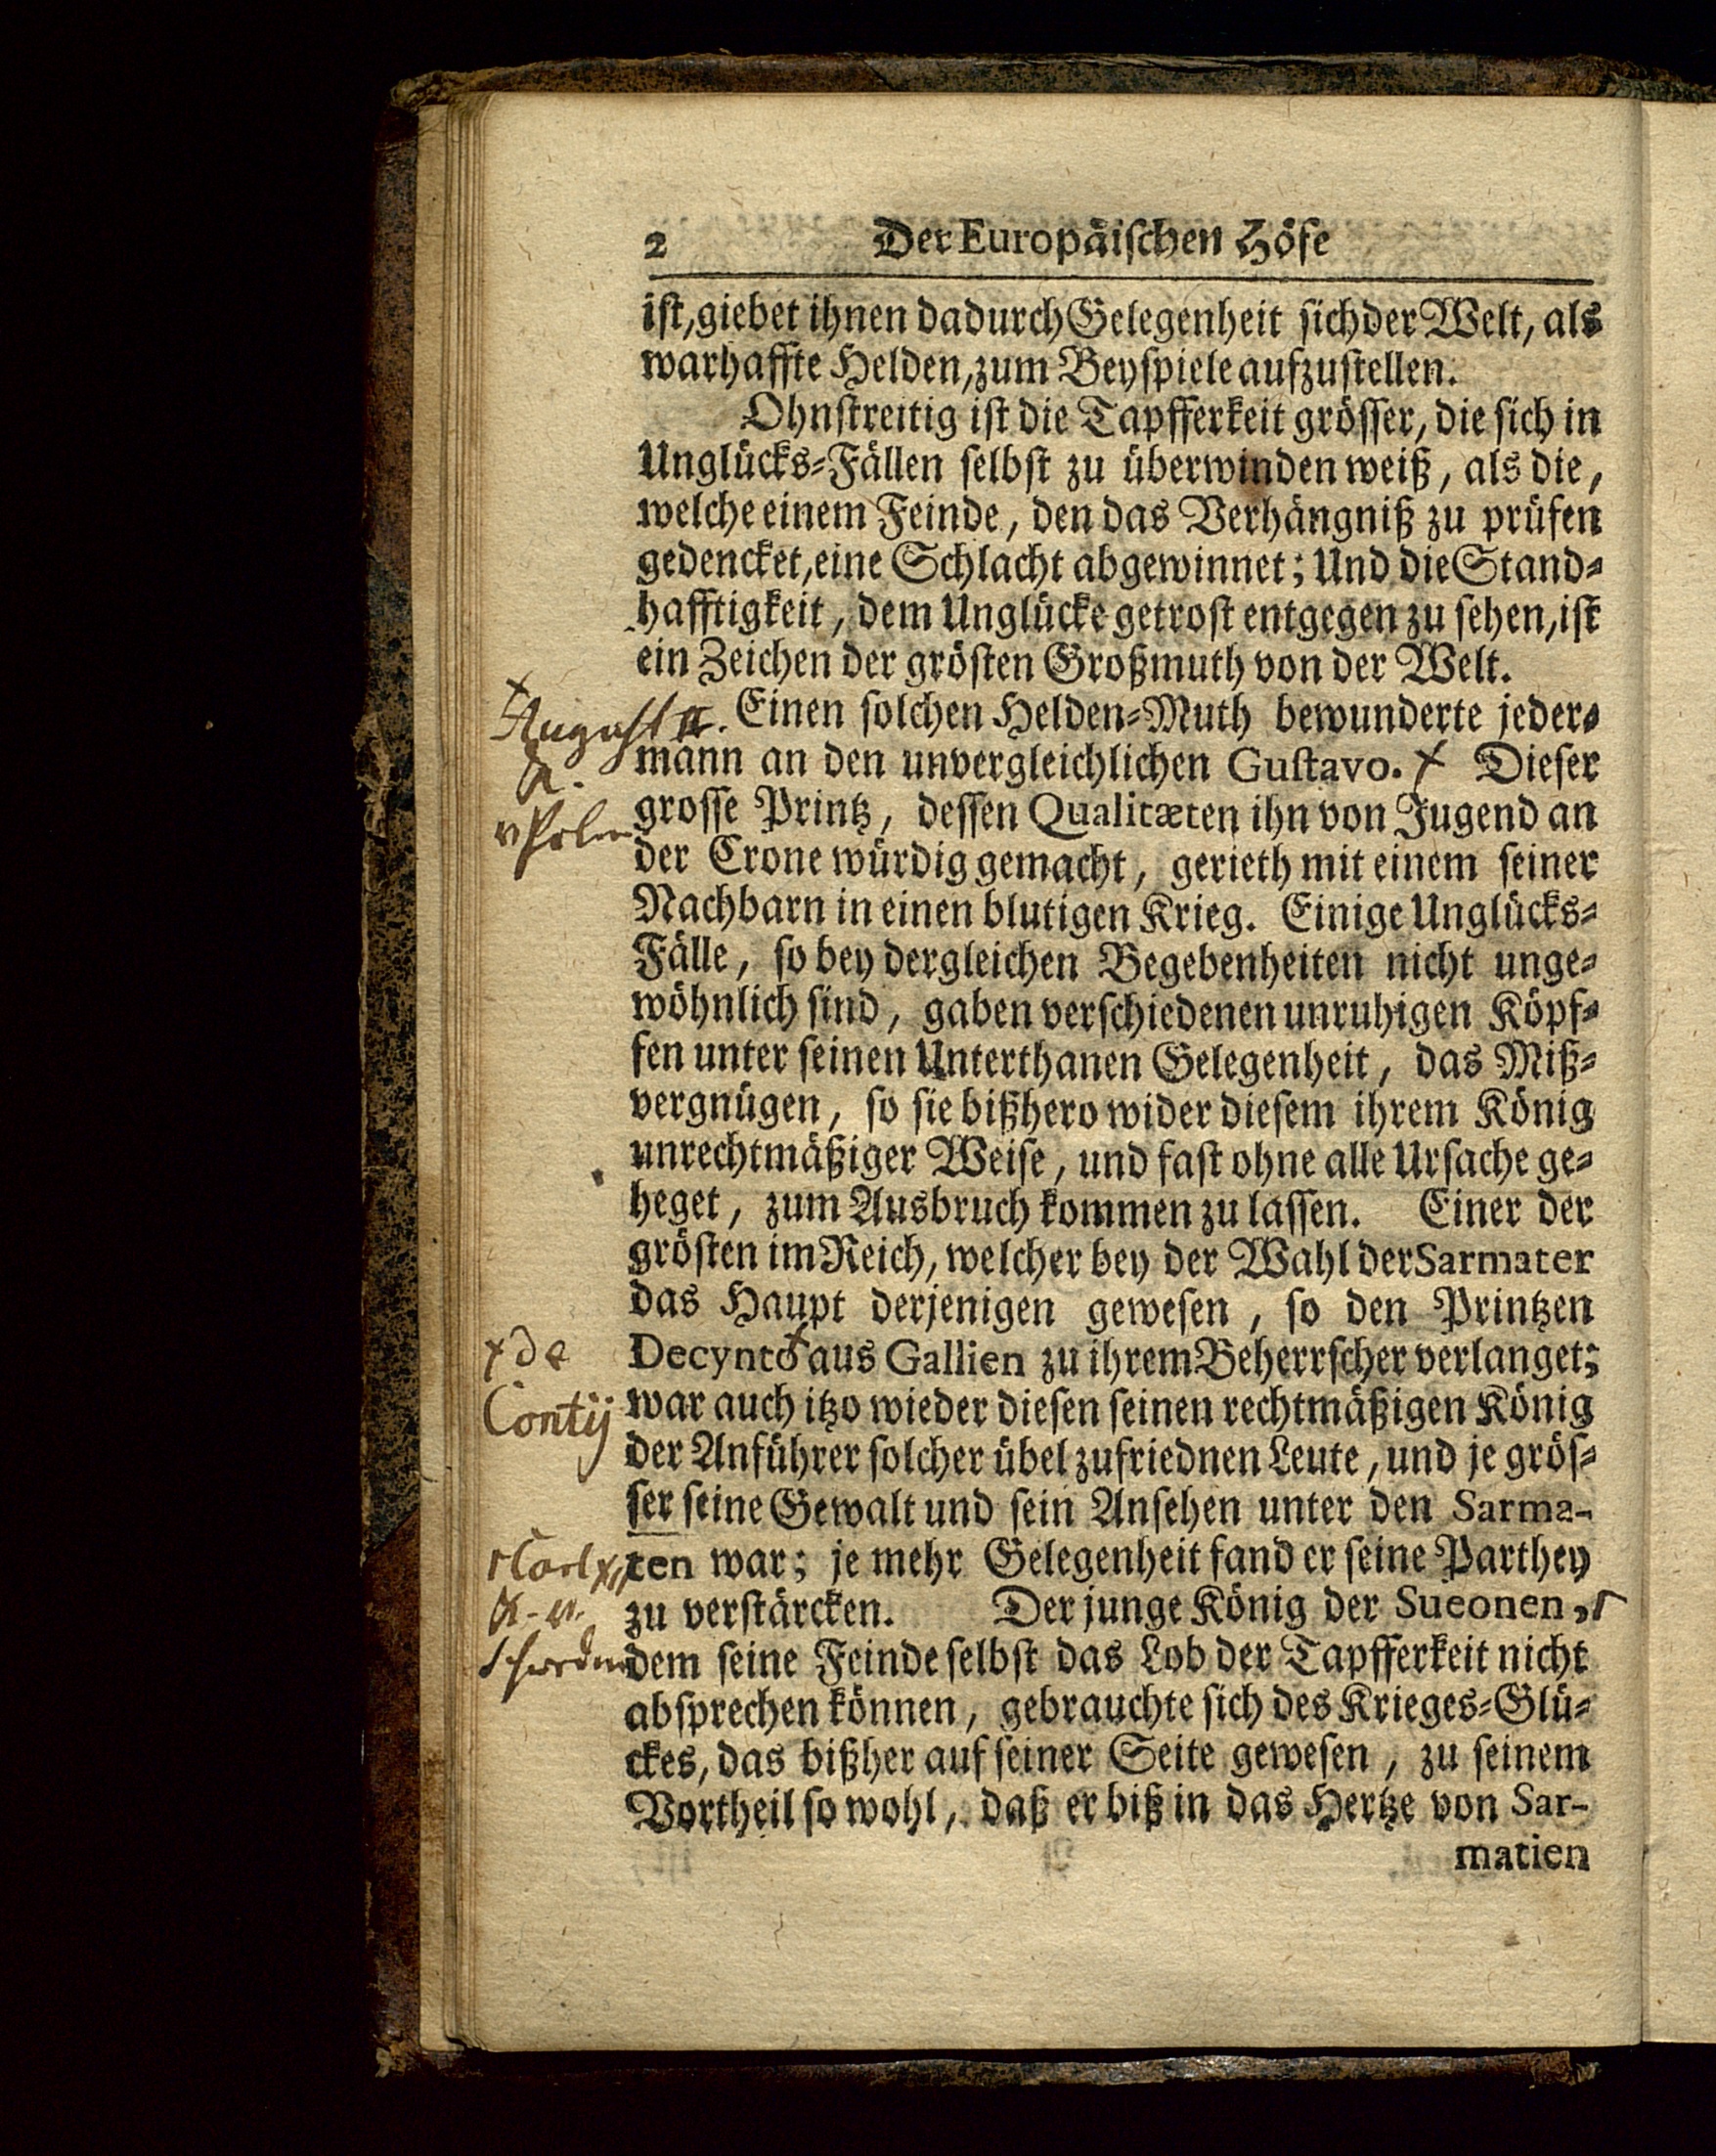 2 Der Europäischen Höfe
ist, giebet ihnen dadurch Gelegenheit sich der Welt, als
warhaffte Helden, zum Beyspiele aufzustellen.
Ohnstreitig ist die Tapfferkeit grösser, die sich in
Unglücks-Fällen selbst zu überwinden weiß, als die,
welche einem Feinde, den das Verhängniß zu prüfen
gedencket, eine Schlacht abgewinnet; Und die Stand-
hafftigkeit, dem Unglücke getrost entgegen zu sehen, ist
ein Zeichen der grösten Großmuth von der Welt.
Einen solchen Helden-Muth bewunderte jeder-
mann an den unvergleichlichen Gustavo. + Dieser
grosse Printz, dessen Qualitæten ihn von Jugend an
der Crone würdig gemacht, gerieth mit einem seiner
Nachbarn in einen blutigen Krieg. Einige Unglücks-
Fälle, so bey dergleichen Begebenheiten nicht unge-
wöhnlich sind, gaben verschiedenen unruhigen Köpf-
fen unter seinen Unterthanen Gelegenheit, das Miß-
vergnügen, so sie bißhero wider diesem ihrem König
unrechtmäßiger Weise, und fast ohne alle Ursache ge-
heget, zum Ausbruch kommen zu lassen. Einer der
grösten im Reich, welcher bey der Wahl der Sarmater
das Haupt derjenigen gewesen, so den Printzen
Decynto + aus Gallien zu ihrem Beherrscher verlanget;
war auch itzo wieder diesen seinen rechtmäßigen König
der Anführer solcher übel zufriednen Leute, und je grös-
ser seine Gewalt und sein Ansehen unter den Sarma-
ten war; je mehr Gelegenheit fand er seine Parthey
zu verstärcken. Der junge König der Sueonen,
dem seine Feinde selbst das Lob der Tapfferkeit nicht
absprechen können, gebrauchte sich des Krieges-Glü-
ckes, das bißher auf seiner Seite gewesen, zu seinem
Vortheil so wohl, daß er biß in das Hertze von Sar-
matien
+
August II.
K.
v Polen
+ de
Contij
Carl XII
K. v.
Schweden